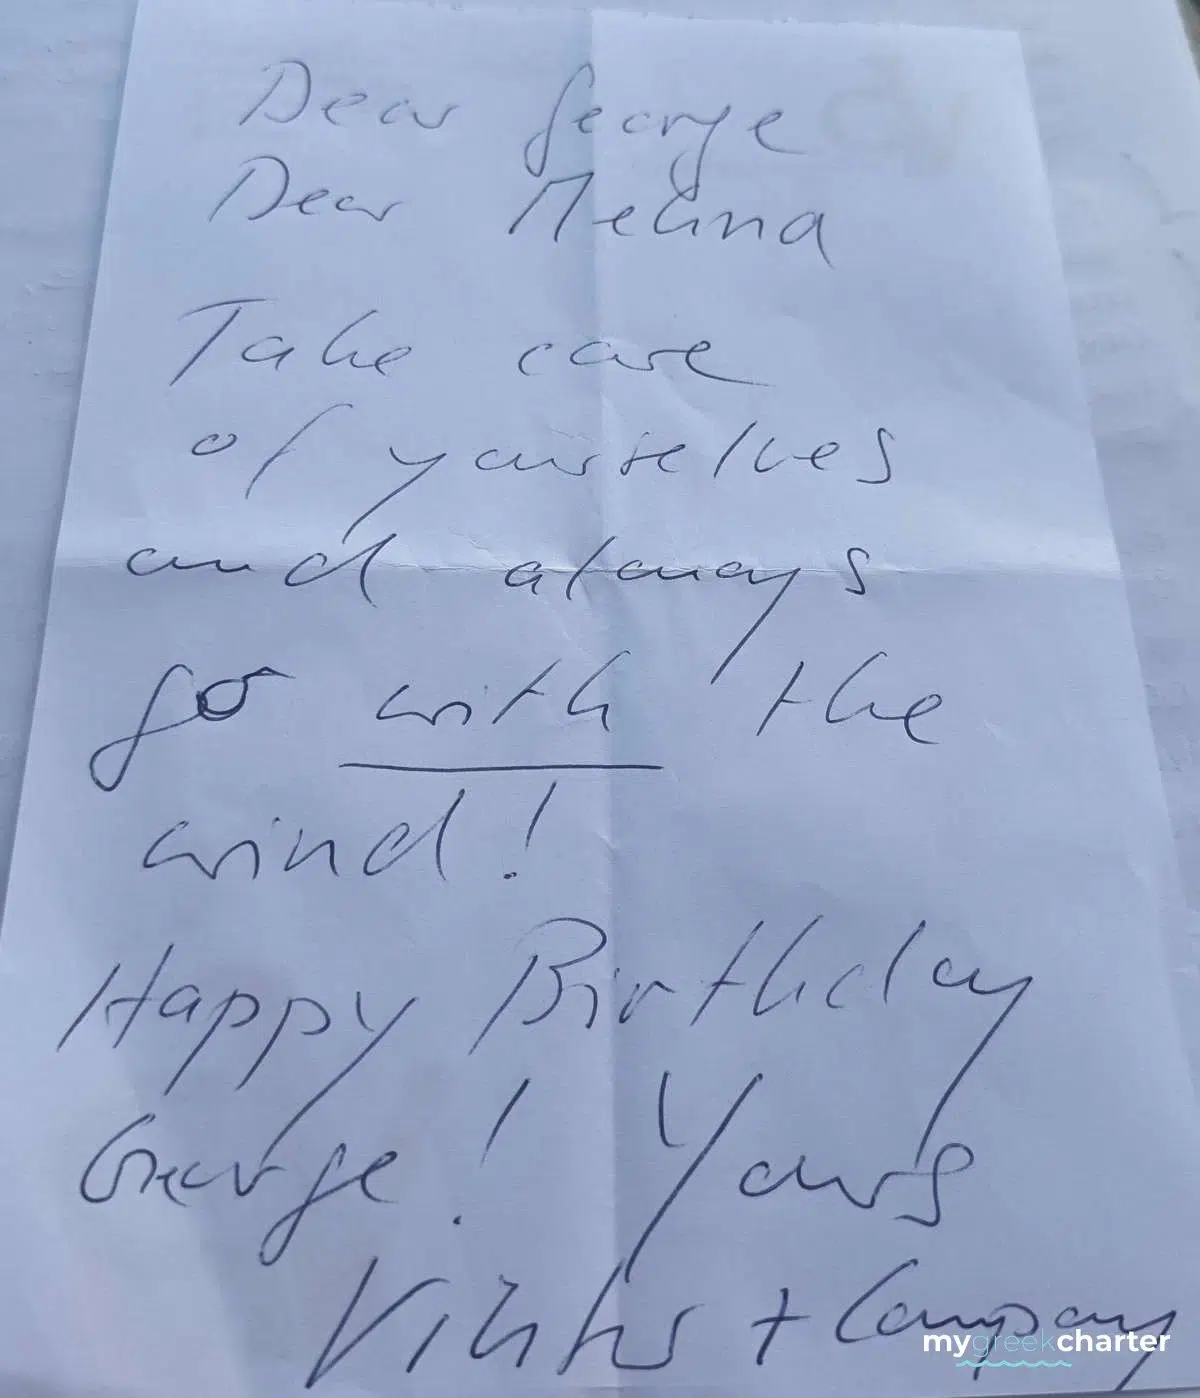 Dear George
Dear Melina
Take care
of yourselves
and always
go with the
wind!
Happy Birthday
George! Yours
+ Company
mygreekcharter